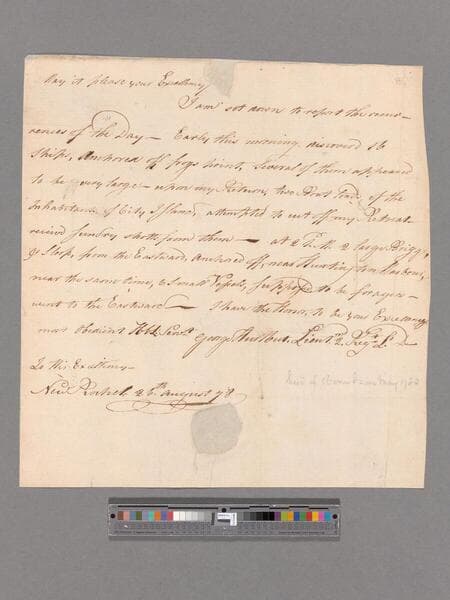 May it please your Excellency
I am sat down to report the occur-
ences of the Day — Early this morning discovered 36
Ships, Anchored off frogs point, Several of them appeared
to be very large — upon my Return, two Boat load of the
Inhabitants of City Island, attempted to cut off my Retreat
received sundry shotts from them — at 2 P.M. 2 large Briggs,
& Sloop, from the Eastward, Anchored off, near Huntington harbour,
near the same time, 6 small Vessels, Supposed to be foragers
went to the Eastward — I have the Honor, to be your Excellencys
most Obedient Hble Servt
George Hurlbut, Lieut 2 Regt L D
To His Excellency
New Rochel 26th August 78
Died of wounds in May 1783